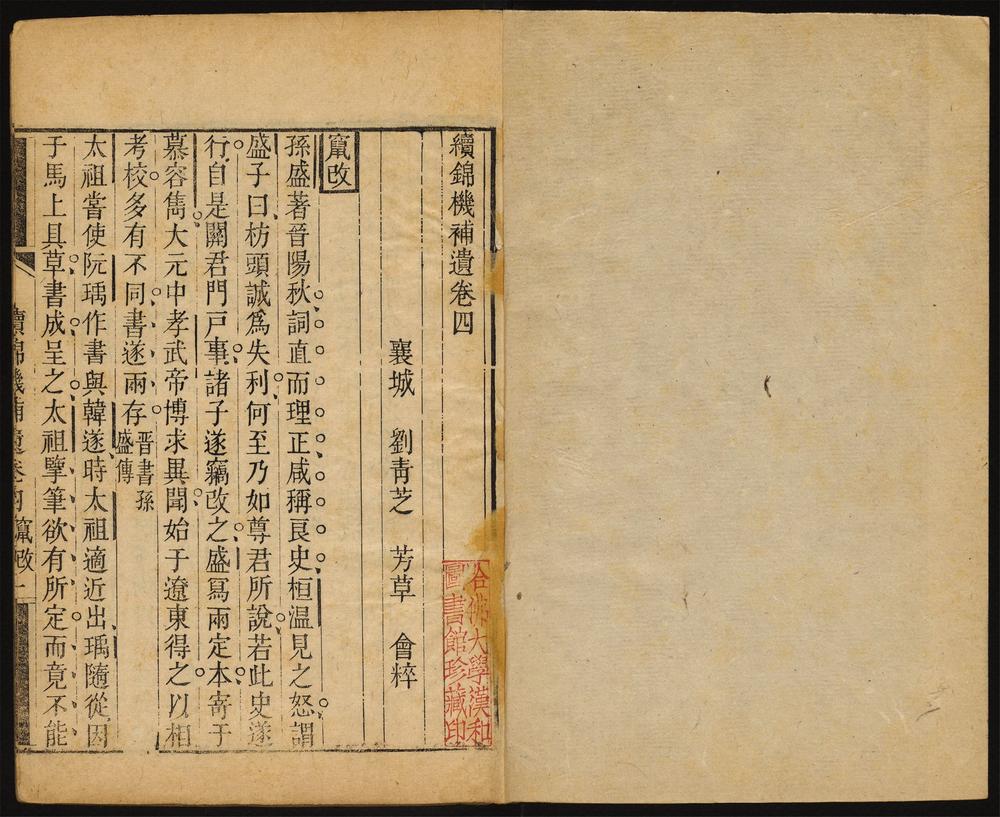 續錦機補遺卷四
襄城 劉青芝 芳草 會粹
竄改
孫盛著晉陽秋詞直而理正咸稱良史桓温見之怒謂
盛子曰枋頭誠爲失利何至乃如尊君所說若此史遂
行自是關君門戸事諸子遂竊改之盛冩兩定本寄于
慕容雋大元中孝武帝博求異聞始于遼東得之以相
考校多有不同書遂兩存晉書孫
盛傳
太祖嘗使阮瑀作書與韓遂時太祖適近出瑀隨從因
于馬上具草書成呈之太祖擥筆欲有所定而竟不能
續錦機補遺卷四 竄改 一
哈佛大學漢和
圖書館珍藏印